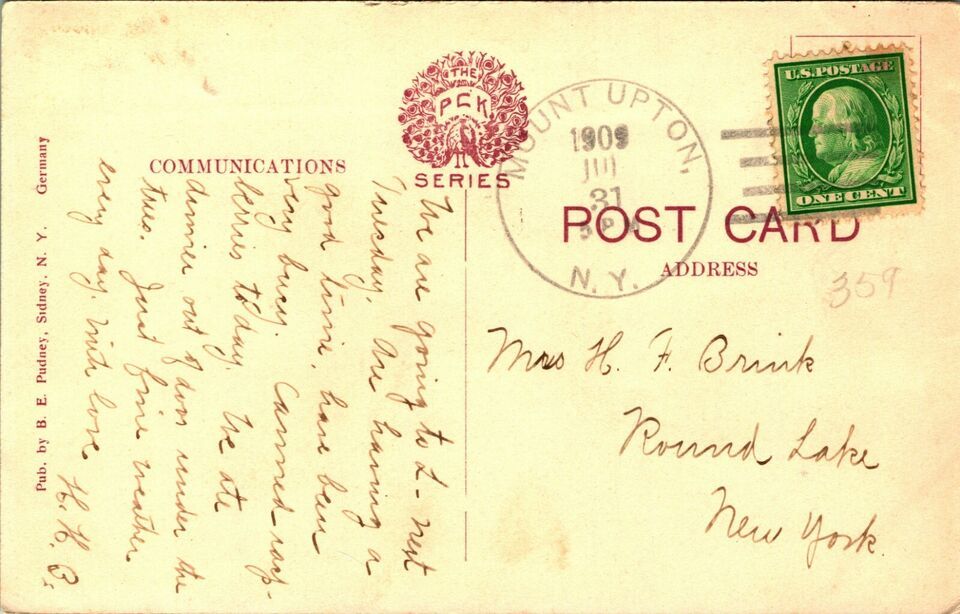 THE
PCK
SERIES
COMMUNICATIONS
MOUNT UPTON,
1909
JUL
31
N. Y.
U.S. POSTAGE
ONE CENT
POST CARD
ADDRESS
359
Mrs H. F. Brink
Round Lake
New York.
We are going to L- next
Tuesday. Are having a
good time, have been
very busy. Canned rasp-
berries to day. We ate
dinner out of doors under the
trees. Just fine weather
every day. With love H. H. B.
Pub. by B. E. Pudney, Sidney, N. Y. Germany